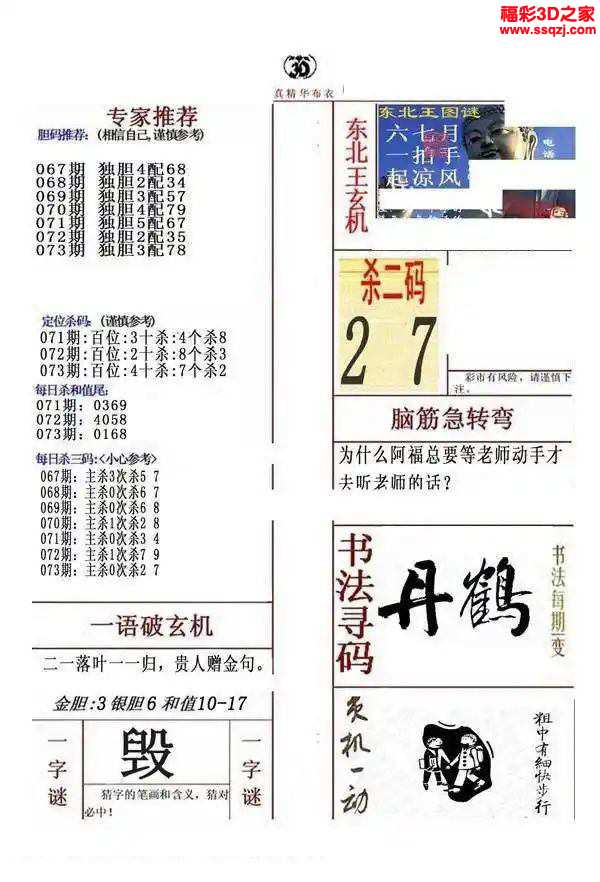 福彩3D之家
www.ssqzj.com
3D
真精华布衣
专家推荐
胆码推荐：(相信自己，谨慎参考)
067期 独胆4配68
068期 独胆2配34
069期 独胆3配57
070期 独胆4配79
071期 独胆5配67
072期 独胆2配35
073期 独胆3配78
定位杀码：(谨慎参考)
071期:百位:3十杀:4个杀8
072期:百位:2十杀:8个杀3
073期:百位:4十杀:7个杀2
每日杀和值尾:
071期: 0369
072期: 4058
073期: 0168
每日杀三码:<小心参考>
067期: 主杀3次杀5 7
068期: 主杀0次杀6 7
069期: 主杀0次杀6 8
070期: 主杀1次杀2 8
071期: 主杀0次杀3 4
072期: 主杀1次杀7 9
073期: 主杀0次杀2 7
一语破玄机
二一落叶一一归，贵人赠金句。
金胆:3 银胆6 和值10-17
一字谜
毁
猜字的笔画和含义，猜对必中！
一字谜
东北王玄机
东北王图谜
六七月
一拍手
起凉风
电话
杀二码
2 7
彩市有风险，请谨慎下
注。
脑筋急转弯
为什么阿福总要等老师动手才
去听老师的话？
书法寻码
丹鹤
书法每期一变
玄机一动
粗中有细快步行